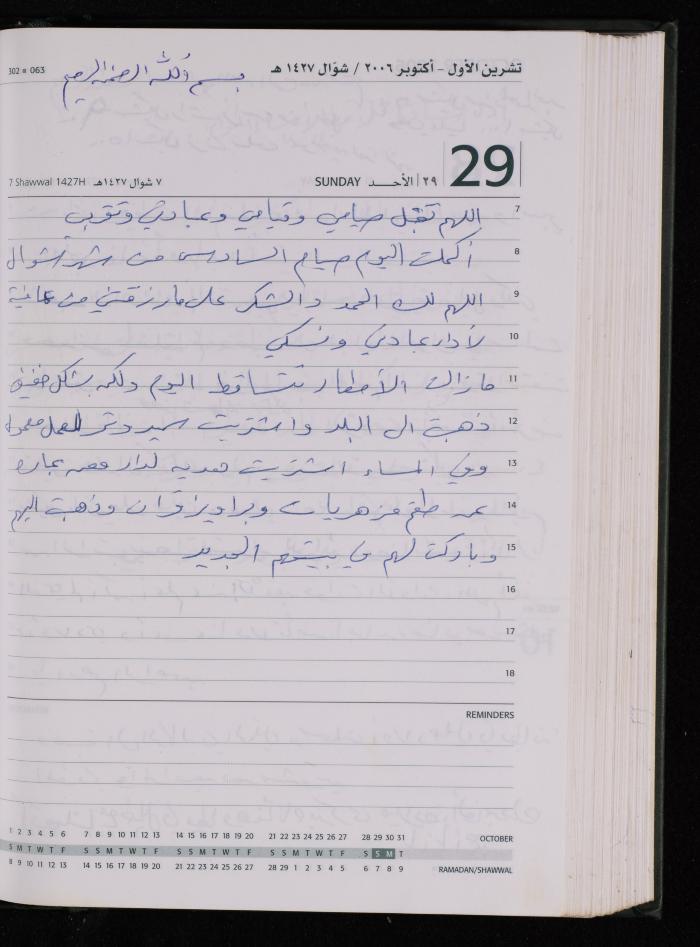 تشرين الأول - أكتوبر ٢٠٠٦ / شوّال ١٤٢٧ هـ
302 ■ 063
بسم الله الرحمن الرحيم
29
٢٩ | الأحـــد SUNDAY
٧ شوال ١٤٢٧هـ 7 Shawwal 1427H
7 اللهم تقبل صيامي وقيامي وعبادتي وتقربي
8 أكملت اليوم صيام السادس من شهر شوال
9 اللهم لك الحمد والشكر على ما رزقتني من عافية
10 لأداء عبادتي ونسكي
11 مازالت الأمطار تتساقط اليوم ولكن بشكل خفيف
12 ذهبت الى البلد واشتريت سميد وتمر لعمل معمول
13 وفي المساء اشتريت هدية لدار
14 طقم مزهريات وبراويز قرآن وذهبت اليهم
15 وباركت لهم في بيتهم الجديد
16
17
18
REMINDERS
1 2 3 4 5 6 7 8 9 10 11 12 13 14 15 16 17 18 19 20 21 22 23 24 25 26 27 28 29 30 31 OCTOBER
S M T W T F S S M T W T F S S M T W T F S S M T W T F S S M T
8 9 10 11 12 13 14 15 16 17 18 19 20 21 22 23 24 25 26 27 28 29 1 2 3 4 5 6 7 8 9 RAMADAN/SHAWWAL